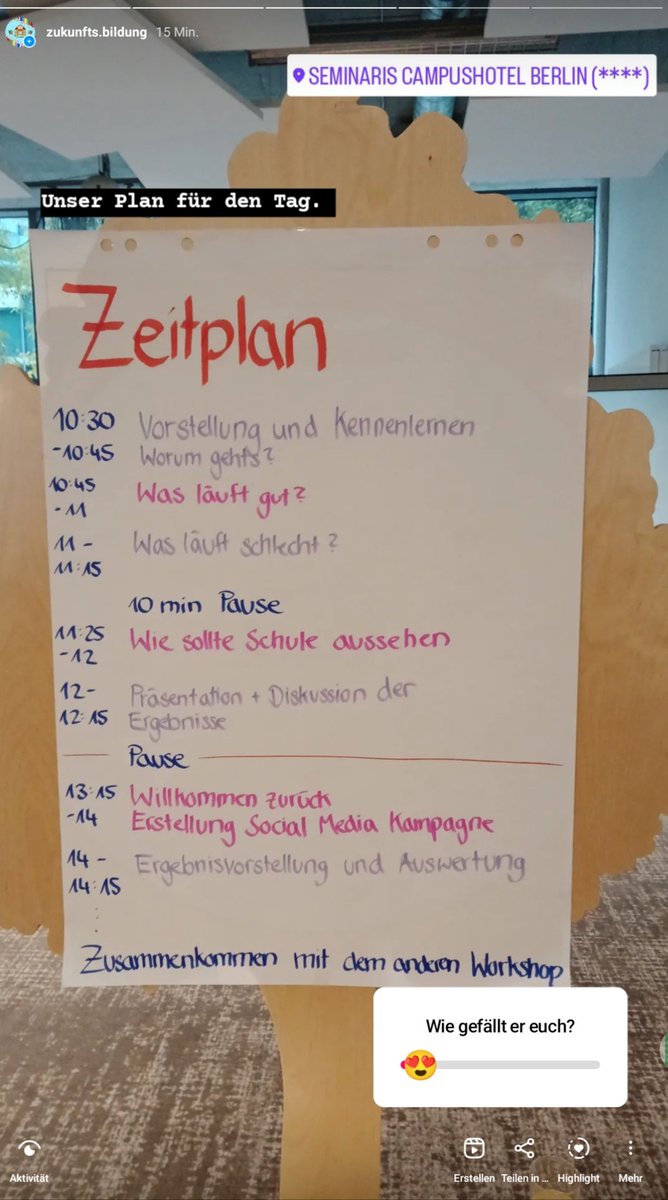 zukunfts.bildung 15 Min.
SEMINARIS CAMPUSHOTEL BERLIN (****)
Unser Plan für den Tag.
Zeitplan
10:30 Vorstellung und Kennenlernen
-10:45 Worum geht's?
10:45 Was läuft gut?
-11
11- Was läuft schlecht?
11:15
10 min Pause
11:25 Wie sollte Schule aussehen
-12
12- Präsentation + Diskussion der
12:15 Ergebnisse
Pause
13:15 Willkommen zurück
-14 Erstellung Social Media Kampagne
14- Ergebnisvorstellung und Auswertung
14:15
Zusammenkommen mit dem anderen Workshop
Wie gefällt er euch?
Aktivität
Erstellen Teilen in ... Highlight Mehr